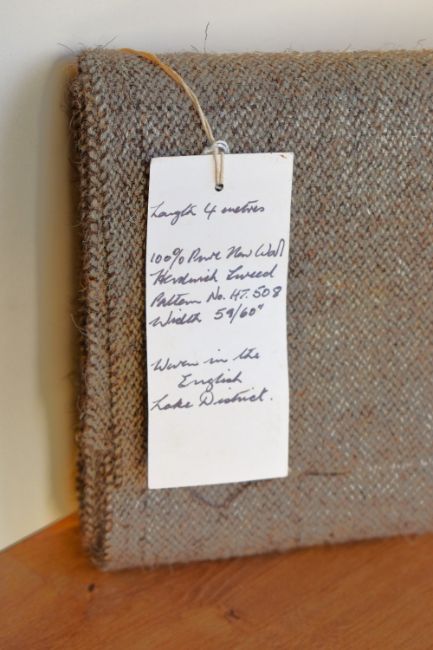 Length 4 metres
100% Pure New Wool
Herdwick Tweed
Pattern No. HT. 508
Width 59/60"
Woven in the
English
Lake District.